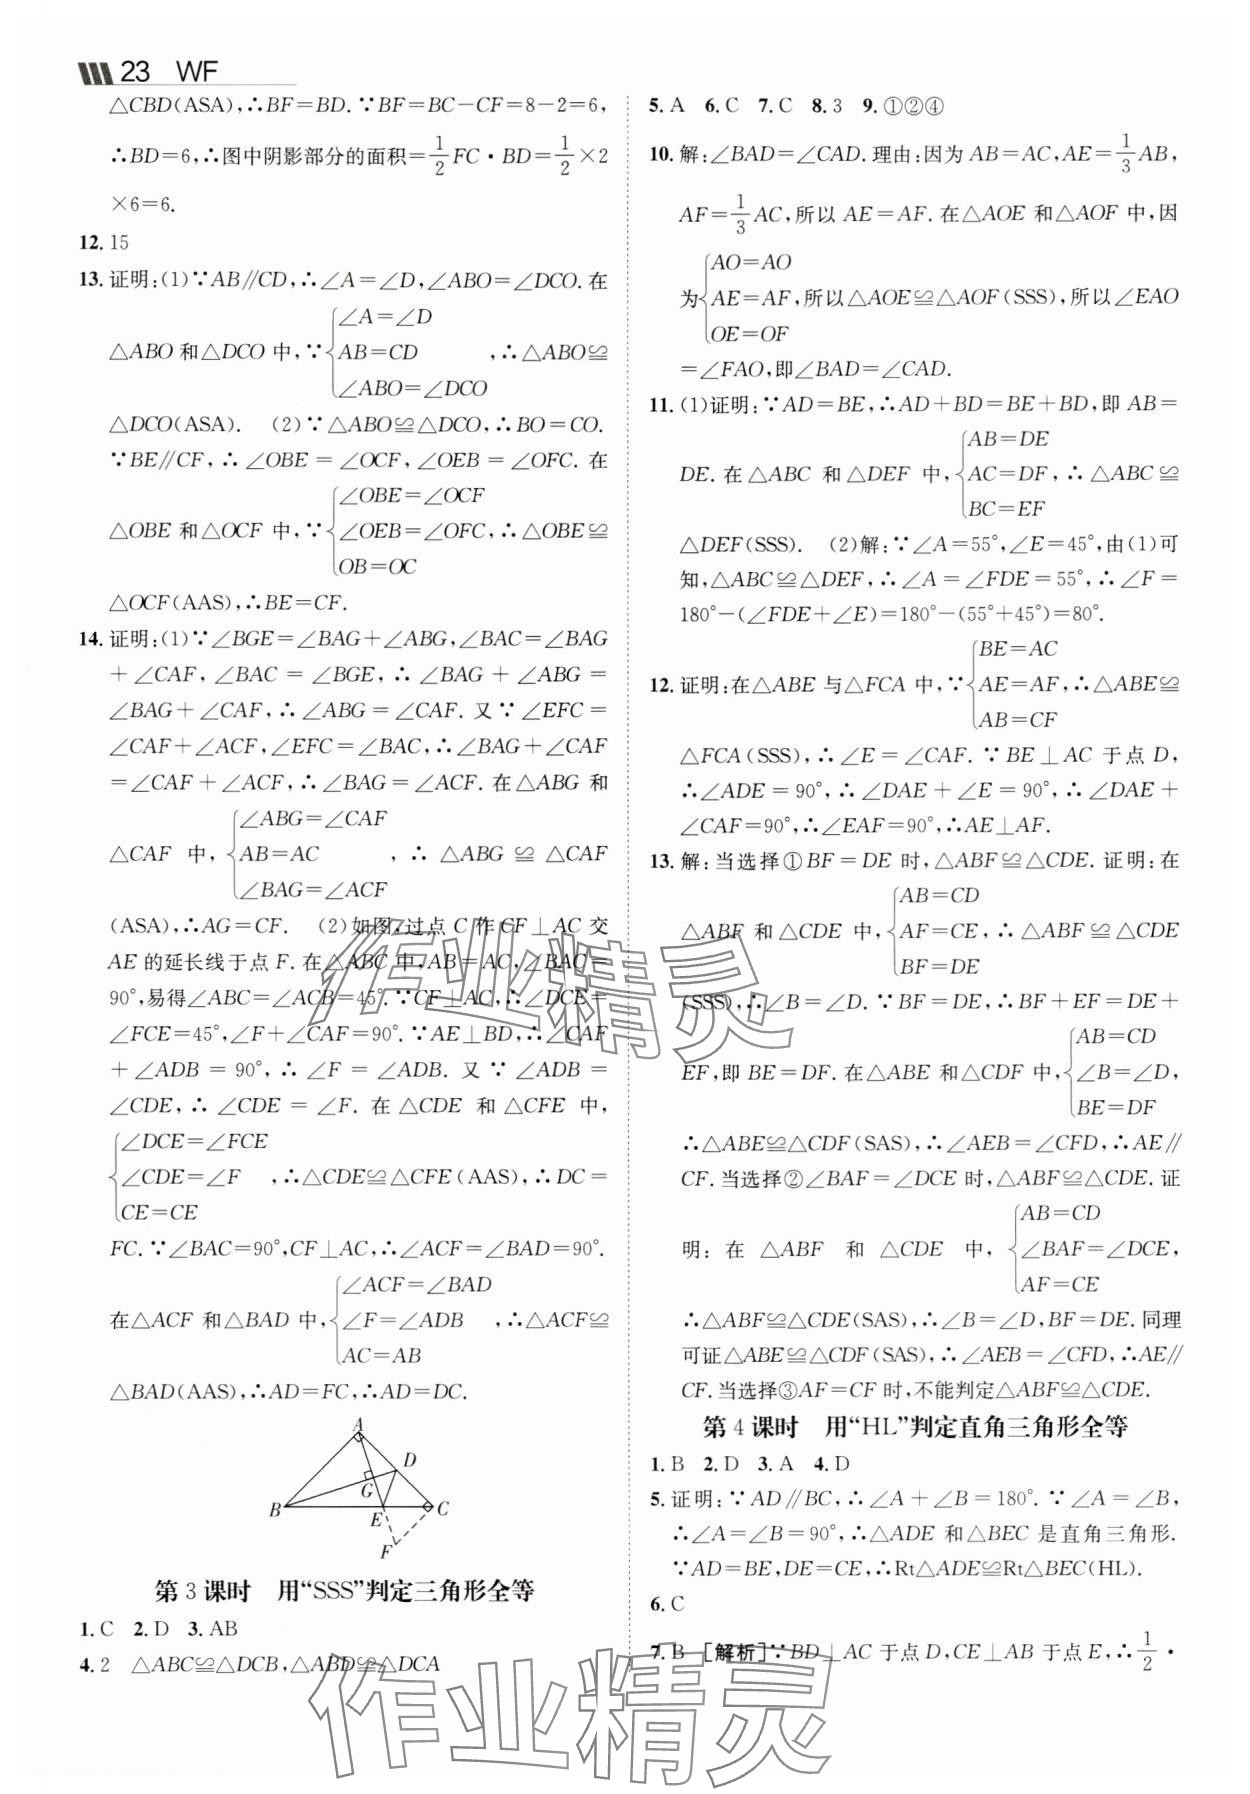 23 WF
△CBD(ASA),∴BF=BD.∵BF=BC−CF=8−2=6,
∴BD=6,∴图中阴影部分的面积=1/2FC·BD=1/2×2
×6=6.
12. 15
13. 证明:(1)∵AB∥CD,∴∠A=∠D,∠ABO=∠DCO.在
∠A=∠D
△ABO和△DCO中,∵{AB=CD ,∴△ABO≌
∠ABO=∠DCO
△DCO(ASA). (2)∵△ABO≌△DCO,∴BO=CO.
∵BE∥CF,∴∠OBE=∠OCF,∠OEB=∠OFC.在
∠OBE=∠OCF
△OBE和△OCF中,∵{∠OEB=∠OFC,∴△OBE≌
OB=OC
△OCF(AAS),∴BE=CF.
14. 证明:(1)∵∠BGE=∠BAG+∠ABG,∠BAC=∠BAG
+∠CAF,∠BAC=∠BGE,∴∠BAG+∠ABG=
∠BAG+∠CAF,∴∠ABG=∠CAF.又∵∠EFC=
∠CAF+∠ACF,∠EFC=∠BAC,∴∠BAG+∠CAF
=∠CAF+∠ACF,∴∠BAG=∠ACF.在△ABG和
∠ABG=∠CAF
△CAF中,{AB=AC ,∴△ABG≌△CAF
∠BAG=∠ACF
(ASA),∴AG=CF. (2)如图,过点C作CF⊥AC交
AE的延长线于点F.在△ABC中,AB=AC,∠BAC=
90°,易得∠ABC=∠ACB=45°.∵CF⊥AC,∴∠DCE=
∠FCE=45°,∠F+∠CAF=90°.∵AE⊥BD,∴∠CAF
+∠ADB=90°,∴∠F=∠ADB.又∵∠ADB=
∠CDE,∴∠CDE=∠F.在△CDE和△CFE中,
∠DCE=∠FCE
{∠CDE=∠F ,∴△CDE≌△CFE(AAS),∴DC=
CE=CE
FC.∵∠BAC=90°,CF⊥AC,∴∠ACF=∠BAD=90°.
∠ACF=∠BAD
在△ACF和△BAD中,{∠F=∠ADB ,∴△ACF≌
AC=AB
△BAD(AAS),∴AD=FC,∴AD=DC.
A
D
G
B
E
C
F
第3课时 用“SSS”判定三角形全等
1. C 2. D 3. AB
4. 2 △ABC≌△DCB,△ABD≌△DCA
5. A 6. C 7. C 8. 3 9. ①②④
10. 解:∠BAD=∠CAD.理由:因为AB=AC,AE=1/3AB,
AF=1/3AC,所以AE=AF.在△AOE和△AOF中,因
AO=AO
为{AE=AF,所以△AOE≌△AOF(SSS),所以∠EAO
OE=OF
=∠FAO,即∠BAD=∠CAD.
11. (1)证明:∵AD=BE,∴AD+BD=BE+BD,即AB=
AB=DE
DE.在△ABC和△DEF中,{AC=DF,∴△ABC≌
BC=EF
△DEF(SSS). (2)解:∵∠A=55°,∠E=45°,由(1)可
知,△ABC≌△DEF,∴∠A=∠FDE=55°,∴∠F=
180°−(∠FDE+∠E)=180°−(55°+45°)=80°.
BE=AC
12. 证明:在△ABE与△FCA中,∵{AE=AF,∴△ABE≌
AB=CF
△FCA(SSS),∴∠E=∠CAF.∵BE⊥AC于点D,
∴∠ADE=90°,∴∠DAE+∠E=90°,∴∠DAE+
∠CAF=90°,∴∠EAF=90°,∴AE⊥AF.
13. 解:当选择①BF=DE时,△ABF≌△CDE.证明:在
AB=CD
△ABF和△CDE中,{AF=CE,∴△ABF≌△CDE
BF=DE
(SSS),∴∠B=∠D.∵BF=DE,∴BF+EF=DE+
AB=CD
EF,即BE=DF.在△ABE和△CDF中,{∠B=∠D,
BE=DF
∴△ABE≌△CDF(SAS),∴∠AEB=∠CFD,∴AE∥
CF.当选择②∠BAF=∠DCE时,△ABF≌△CDE.证
AB=CD
明:在△ABF和△CDE中,{∠BAF=∠DCE,
AF=CE
∴△ABF≌△CDE(SAS),∴∠B=∠D,BF=DE.同理
可证△ABE≌△CDF(SAS),∴∠AEB=∠CFD,∴AE∥
CF.当选择③AF=CF时,不能判定△ABF≌△CDE.
第4课时 用“HL”判定直角三角形全等
1. B 2. D 3. A 4. D
5. 证明:∵AD∥BC,∴∠A+∠B=180°.∵∠A=∠B,
∴∠A=∠B=90°,∴△ADE和△BEC是直角三角形.
∵AD=BE,DE=CE,∴Rt△ADE≌Rt△BEC(HL).
6. C
7. B [解析]∵BD⊥AC于点D,CE⊥AB于点E,∴1/2·
作业精灵
作业精灵